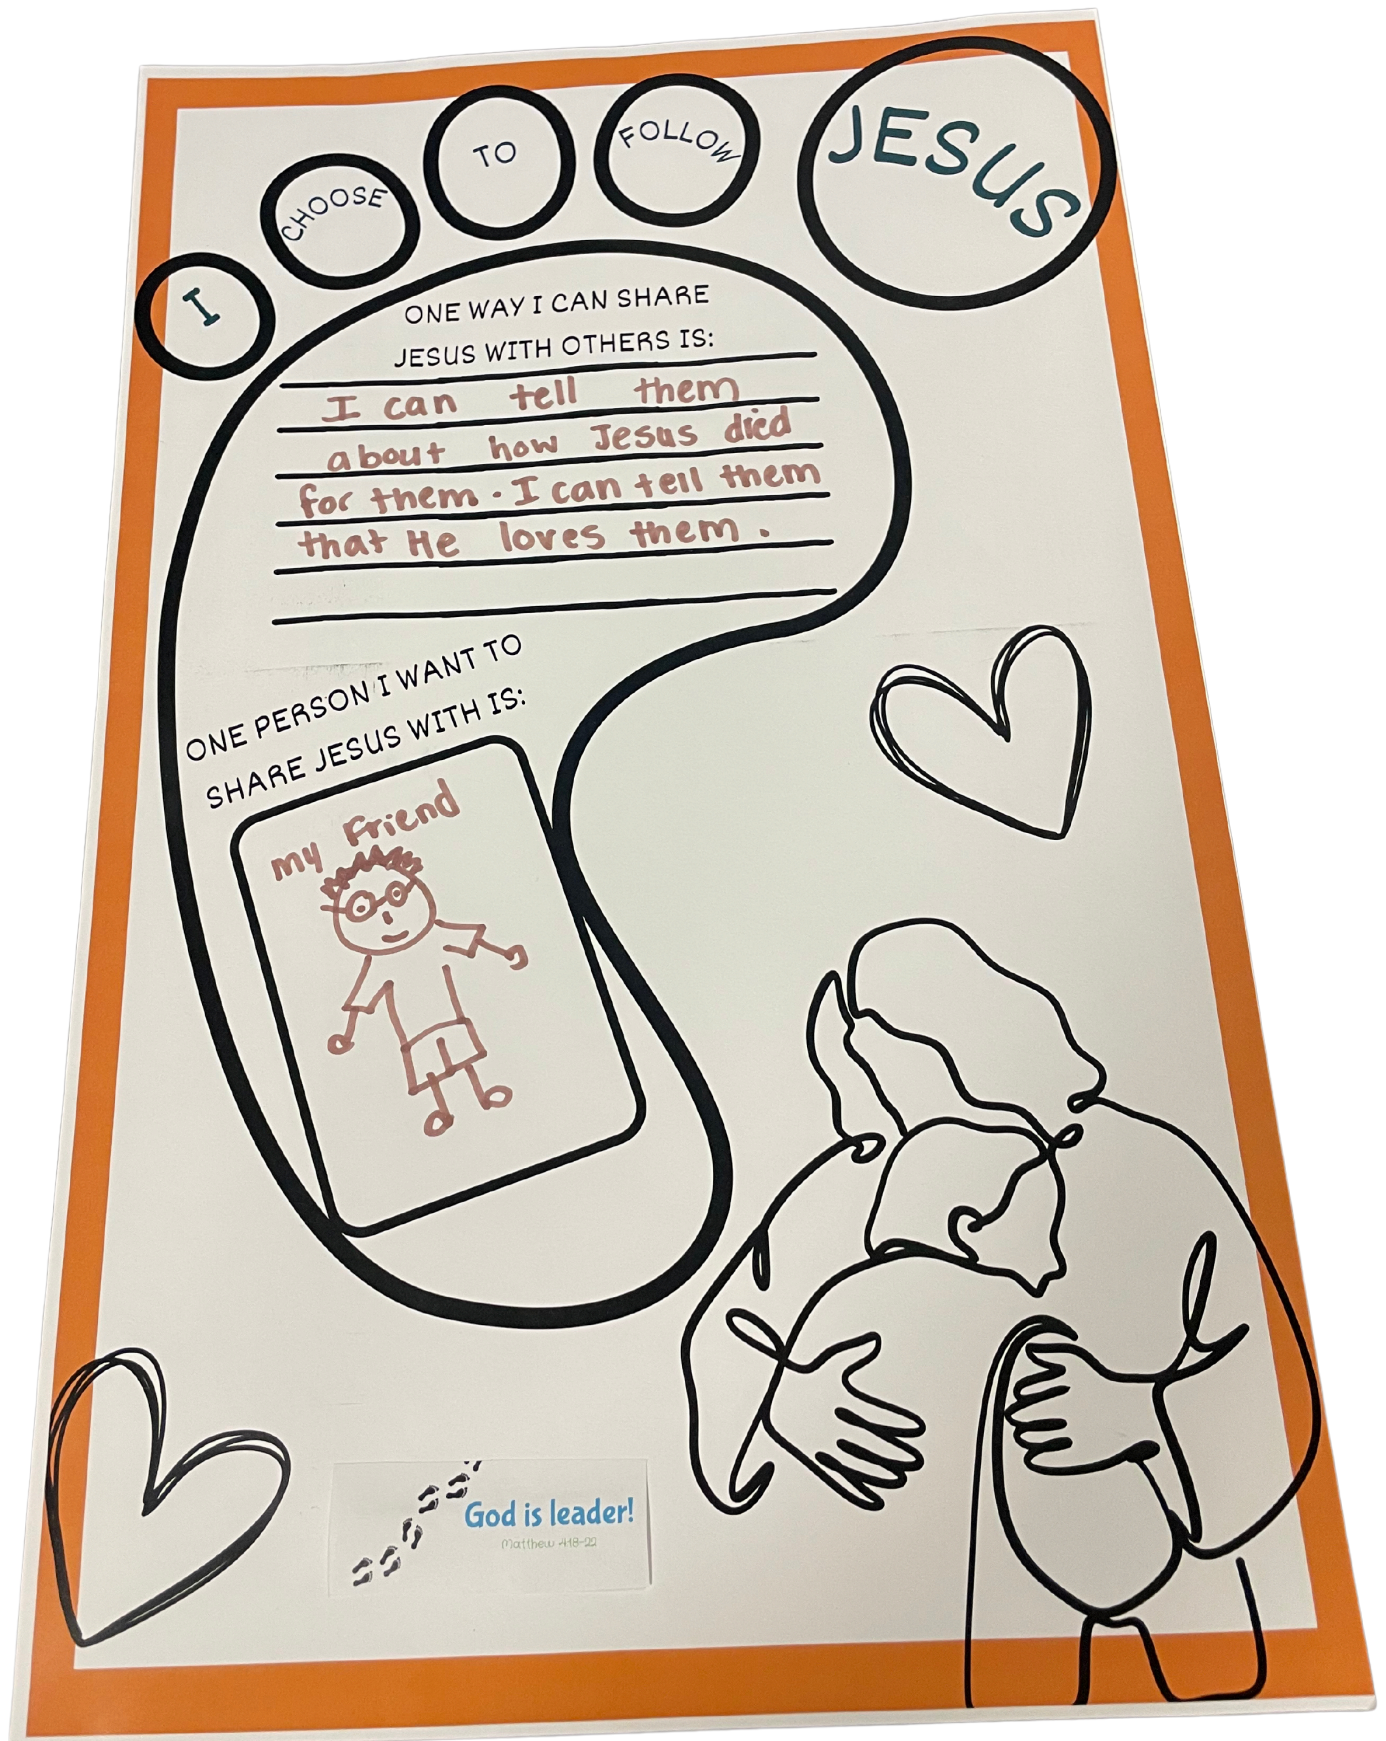 I
CHOOSE
TO
FOLLOW
JESUS
ONE WAY I CAN SHARE
JESUS WITH OTHERS IS:
I can tell them
about how Jesus died
for them. I can tell them
that He loves them.
ONE PERSON I WANT TO
SHARE JESUS WITH IS:
my Friend
God is leader!
Matthew 4:18-22